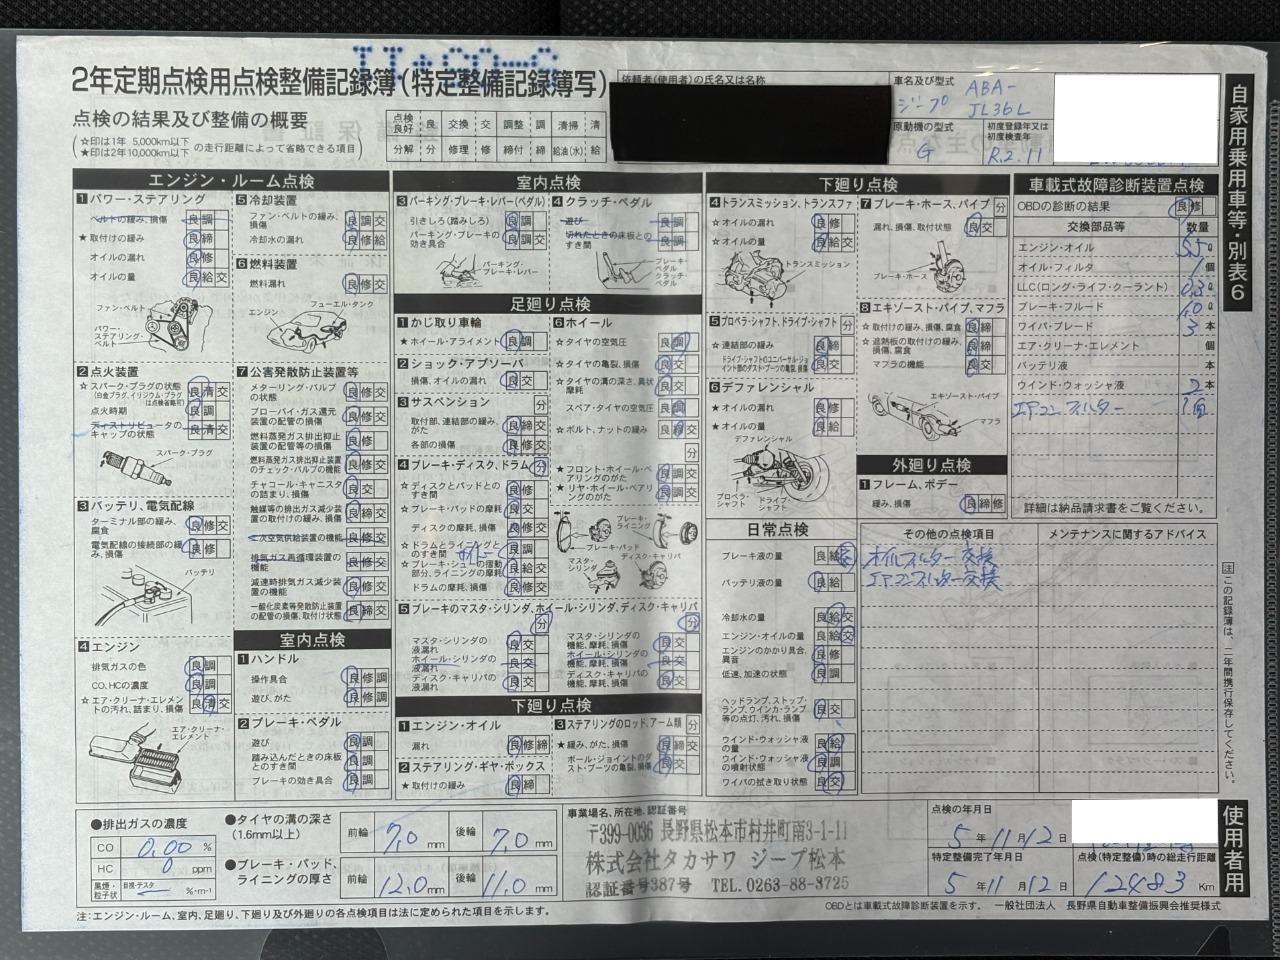 2年定期点検用点検整備記録簿(特定整備記録簿写)
点検の結果及び整備の概要
☆印は1年 5,000km以下
★印は2年10,000km以下
の走行距離によって省略できる項目
点検良好 良 交換 交 調整 調 清掃 清
分解 分 修理 修 締付 締 給油(水) 給
依頼者(使用者)の氏名又は名称
車名及び型式
ジープ
ABA-
JL36L
原動機の型式
G
初度登録年又は
初度検査年
R.2.11
自家用乗用車等・別表6
エンジン・ルーム点検
1 パワー・ステアリング
ベルトの緩み、損傷 良 調
★ 取付けの緩み 良 締
オイルの漏れ 良 修
オイルの量 良 給 交
ファン・ベルト
パワー・
ステアリング・
ベルト
2 点火装置
☆ スパーク・プラグの状態
(白金プラグ、イリジウム・プラグ
は点検省略可) 良 清 交
点火時期 良 調
ディストリビュータの
キャップの状態 良 清 交
スパーク・プラグ
3 バッテリ、電気配線
ターミナル部の緩み、
腐食 良 修 交
電気配線の接続部の緩
み、損傷 良 修
バッテリ
4 エンジン
排気ガスの色 良 調
CO、HCの濃度 良 調
☆ エア・クリーナ・エレメン
トの汚れ、詰まり、損傷 良 清 交
エア・クリーナ・
エレメント
5 冷却装置
ファン・ベルトの緩み、
損傷 良 調 交
冷却水の漏れ 良 修 給
6 燃料装置
燃料漏れ 良 修 交
フューエル・タンク
エンジン
7 公害発散防止装置等
メターリング・バルブ
の状態 良 修 交
ブローバイ・ガス還元
装置の配管の損傷 良 修 交
燃料蒸発ガス排出抑止
装置の配管等の損傷 良 修
燃料蒸発ガス排出抑止装置
のチェック・バルブの機能 良 修 交
チャコール・キャニスタ
の詰まり、損傷 良 交
触媒等の排出ガス減少装
置の取付けの緩み、損傷 良 修 締
二次空気供給装置の機能 良 修 交
排気ガス再循環装置の
機能 良 修 交
減速時排気ガス減少装
置の機能 良 修 交
一酸化炭素等発散防止装置
の配管の損傷、取付け状態 良 締 交
室内点検
1 ハンドル
操作具合 良 修 調
遊び、がた 良 修 調
2 ブレーキ・ペダル
遊び 良 調
踏み込んだときの床板
とのすき間 良 調
ブレーキの効き具合 良 調
室内点検
3 パーキング・ブレーキ・レバー(ペダル)
引きしろ(踏みしろ) 良 調
パーキング・ブレーキの
効き具合 良 調 交
パーキング・
ブレーキ・レバー
4 クラッチ・ペダル
遊び 良 調
切れたときの床板との
すき間 良 調
ブレーキ・
ペダル
クラッチ・
ペダル
足廻り点検
1 かじ取り車輪
★ ホイール・アライメント 良 調
2 ショック・アブソーバ
損傷、オイルの漏れ 良 交
3 サスペンション 分
取付部、連結部の緩み、
がた 良 締 交
各部の損傷 良 修 交
4 ブレーキ・ディスク、ドラム 分
☆ ディスクとパッドとの
すき間 良 修
☆ ブレーキ・パッドの摩耗 良 交
ディスクの摩耗、損傷 良 修 交
☆ ドラムとライニングと
のすき間 良 調
☆ ブレーキ・シューの摺動
部分、ライニングの摩耗 良 給 交
ドラムの摩耗、損傷 良 修 交
5 ブレーキのマスタ・シリンダ、ホイール・シリンダ、ディスク・キャリパ
分 分
マスタ・シリンダの
液漏れ 良 交
ホイール・シリンダの
液漏れ 良 交
ディスク・キャリパの
液漏れ 良 交
マスタ・シリンダの
機能、摩耗、損傷 良 交
ホイール・シリンダの
機能、摩耗、損傷 良 交
ディスク・キャリパの
機能、摩耗、損傷 良 交
6 ホイール
☆ タイヤの空気圧 良 調
☆ タイヤの亀裂、損傷 良 交
☆ タイヤの溝の深さ、異状
摩耗 良 修 交
スペア・タイヤの空気圧 良 調
☆ ボルト、ナットの緩み 良 締 交
分
★ フロント・ホイール・ベ
アリングのがた 良 調 交
★ リヤ・ホイール・ベアリ
ングのがた 良 調 交
ブレーキ・
ライニング
ブレーキ・パッド
マスタ・
シリンダ
ディスク・キャリパ
下廻り点検
1 エンジン・オイル
漏れ 良 修 締
2 ステアリング・ギヤ・ボックス
★ 取付けの緩み 良 締
3 ステアリングのロッド、アーム類 分
★ 緩み、がた、損傷 良 締 交
ボール・ジョイントのダ
スト・ブーツの亀裂、損傷 良 交
下廻り点検
4 トランスミッション、トランスファ
☆ オイルの漏れ 良 修
☆ オイルの量 良 給 交
トランスミッション
5 プロペラ・シャフト、ドライブ・シャフト 分
☆ 連結部の緩み 良 締
ドライブ・シャフトのユニバーサル・ジョ
イント部のダスト・ブーツの亀裂、損傷 良 交
6 デファレンシャル
★ オイルの漏れ 良 修
★ オイルの量 良 給
デファレンシャル
プロペラ・
シャフト
ドライブ・
シャフト
7 ブレーキ・ホース、パイプ 分
漏れ、損傷、取付状態 良 交
ブレーキ・ホース
8 エキゾースト・パイプ、マフラ
☆ 取付けの緩み、損傷、腐食 良 締
☆ 遮熱板の取付けの緩み、
損傷、腐食 良 締
マフラの機能 良 修
エキゾースト・パイプ
マフラ
外廻り点検
1 フレーム、ボデー
緩み、損傷 良 締 修
日常点検
ブレーキ液の量 良 給 交
バッテリ液の量 良 給
冷却水の量 良 給 交
エンジン・オイルの量 良 給 交
エンジンのかかり具合、
異音 良 修
低速、加速の状態 良 調
ヘッドランプ、ストップ・
ランプ、ウインカ・ランプ
等の点灯、汚れ、損傷 良 交
ウインド・ウォッシャ液
の量 良 給
ウインド・ウォッシャ液
の噴射状態 良 調
ワイパの拭き取り状態 良 交
車載式故障診断装置点検
OBDの診断の結果 良 修
交換部品等 数量
エンジン・オイル 5.5 ℓ
オイル・フィルタ 1 個
LLC(ロング・ライフ・クーラント) 0.3 ℓ
ブレーキ・フルード 1.0 ℓ
ワイパ・ブレード 3 本
エア・クリーナ・エレメント 個
バッテリ液 本
ウインド・ウォッシャ液 2 本
エアコンフィルター 1個
詳細は納品請求書をご覧ください。
その他の点検項目 メンテナンスに関するアドバイス
オイルフィルター交換
エアコンフィルター交換
(注)この記録簿は、二年間携行保存してください。
使用者用
●排出ガスの濃度
CO 0.00 %
HC 0 ppm
黒煙・
粒子状 目視・テスタ %・m-1
●タイヤの溝の深さ
(1.6mm以上)
前輪 7.0 mm 後輪 7.0 mm
●ブレーキ・パッド、
ライニングの厚さ
前輪 12.0 mm 後輪 11.0 mm
事業場名、所在地、認証番号
〒399-0036 長野県松本市村井町南3-1-11
株式会社タカサワ ジープ松本
認証番号387号 TEL.0263-88-3725
点検の年月日
5年11月12日
特定整備完了年月日
5年11月12日
点検(特定整備)時の総走行距離
12483 Km
注:エンジン・ルーム、室内、足廻り、下廻り及び外廻りの各点検項目は法に定められた項目を示します。
OBDとは車載式故障診断装置を示す。 一般社団法人 長野県自動車整備振興会推奨様式